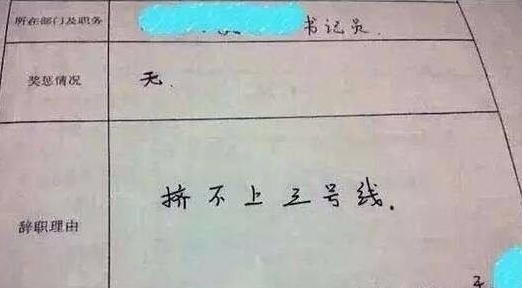 所在部门及职务 书记员
奖惩情况 无.
辞职理由 挤不上三号线.